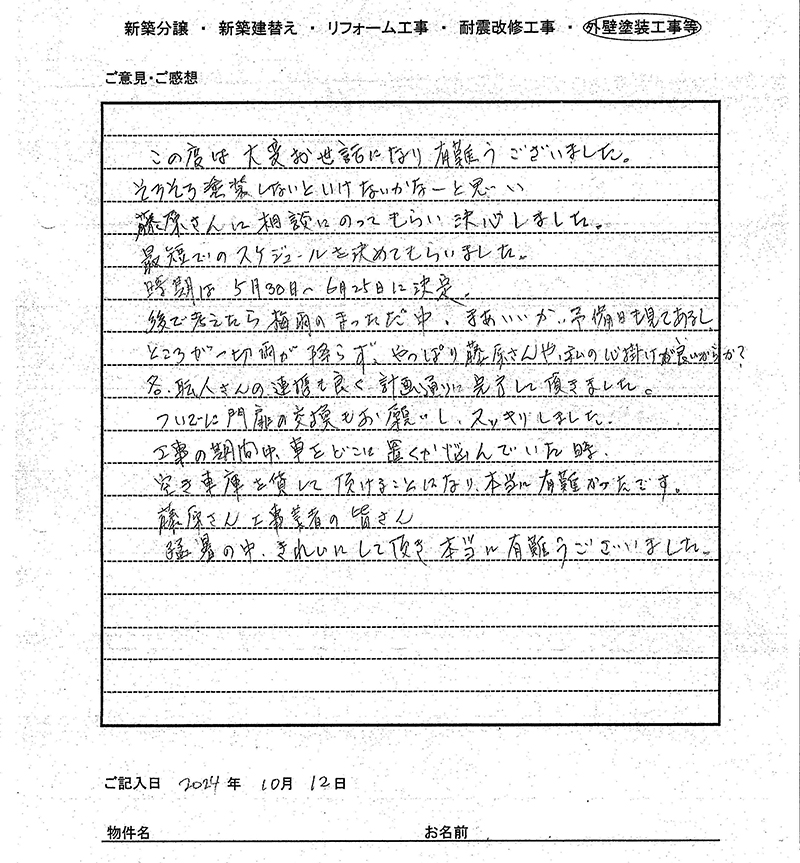 新築分譲 ・ 新築建替え ・ リフォーム工事 ・ 耐震改修工事 ・ 外壁塗装工事等
ご意見・ご感想
この度は 大変お世話になり 有難うございました。
そろそろ塗装しないといけないかなーと思い
藤原さんに相談にのってもらい 決心しました。
最短でのスケジュールを決めてもらいました。
時期は 5月30日〜6月25日に決定。
後で考えたら 梅雨のまっただ中、まあいいか、予備日も見てあるし
ところが一切雨が降らず、やっぱり藤原さんや、私の心掛けが良いからか?
各、職人さんの連携も良く、計画通りに完了して頂きました。
ついでに門扉の交換もお願いし、スッキリしました。
工事の期間中、車をどこに置くか悩んでいた時、
空き車庫を貸して頂けることになり、本当に有難かったです。
藤原さん 工事業者の皆さん
猛暑の中、きれいにして頂き 本当に有難うございました。
ご記入日 2024 年 10月 12日
物件名 お名前